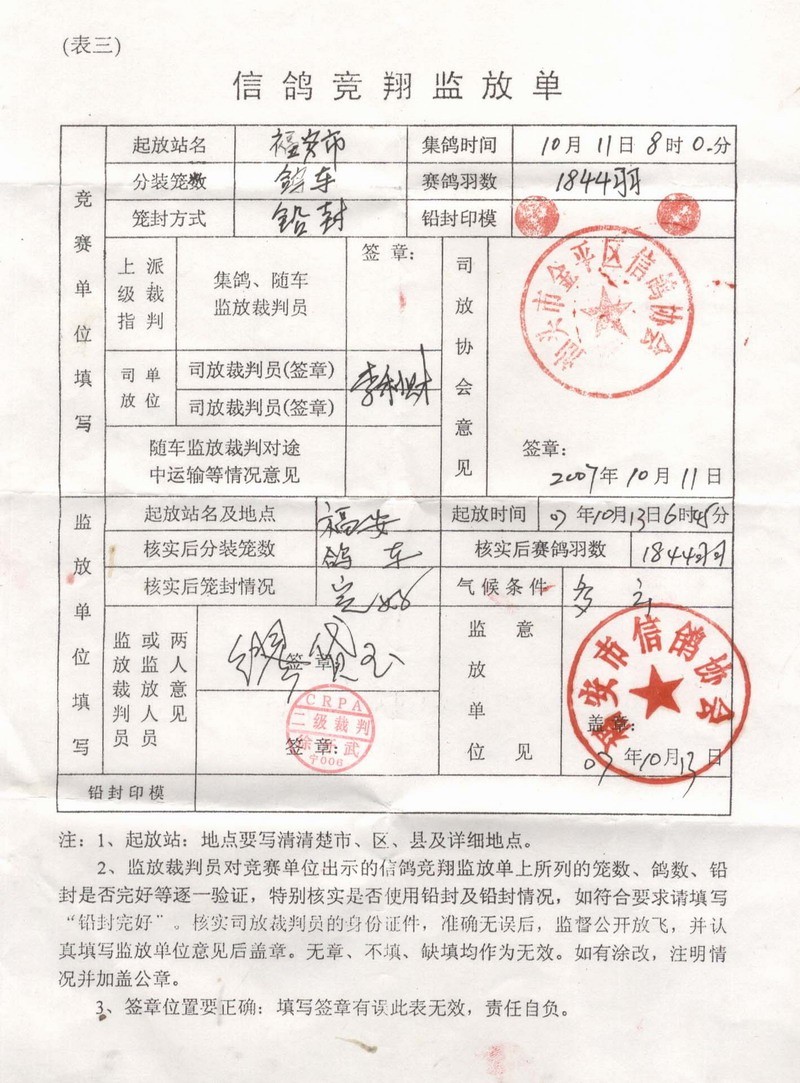 (表三)
信鸽竞翔监放单
竞赛单位填写
起放站名 福安市 集鸽时间 10月11日8时0分
分装笼数 鸽车 赛鸽羽数 1844羽
笼封方式 铅封 铅封印模
上级指派裁判 集鸽、随车监放裁判员 签章:
司放单位 司放裁判员(签章) 李利财
司放裁判员(签章)
随车监放裁判对途中运输等情况意见
司放协会意见
汕头市金平区信鸽协会
签章:
2007年10月11日
监放单位填写
起放站名及地点 福安 起放时间 07年10月13日6时45分
核实后分装笼数 鸽车 核实后赛鸽羽数 1844羽
核实后笼封情况 完好 气候条件 多云
监放裁判员或监放人员两人意见
签章
CRPA
二级裁判
宁006
签章:
监放单位意见
福安市信鸽协会
盖章:
07年10月13日
铅封印模
注:1、起放站:地点要写清清楚市、区、县及详细地点。
2、监放裁判员对竞赛单位出示的信鸽竞翔监放单上所列的笼数、鸽数、铅
封是否完好等逐一验证,特别核实是否使用铅封及铅封情况,如符合要求请填写
“铅封完好”。核实司放裁判员的身份证件,准确无误后,监督公开放飞,并认
真填写监放单位意见后盖章。无章、不填、缺填均作为无效。如有涂改,注明情
况并加盖公章。
3、签章位置要正确:填写签章有误此表无效,责任自负。